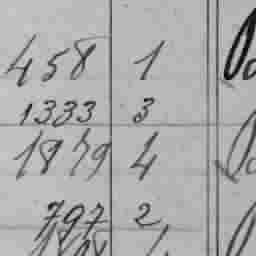 458 1
1333 3
1879 4
797 2